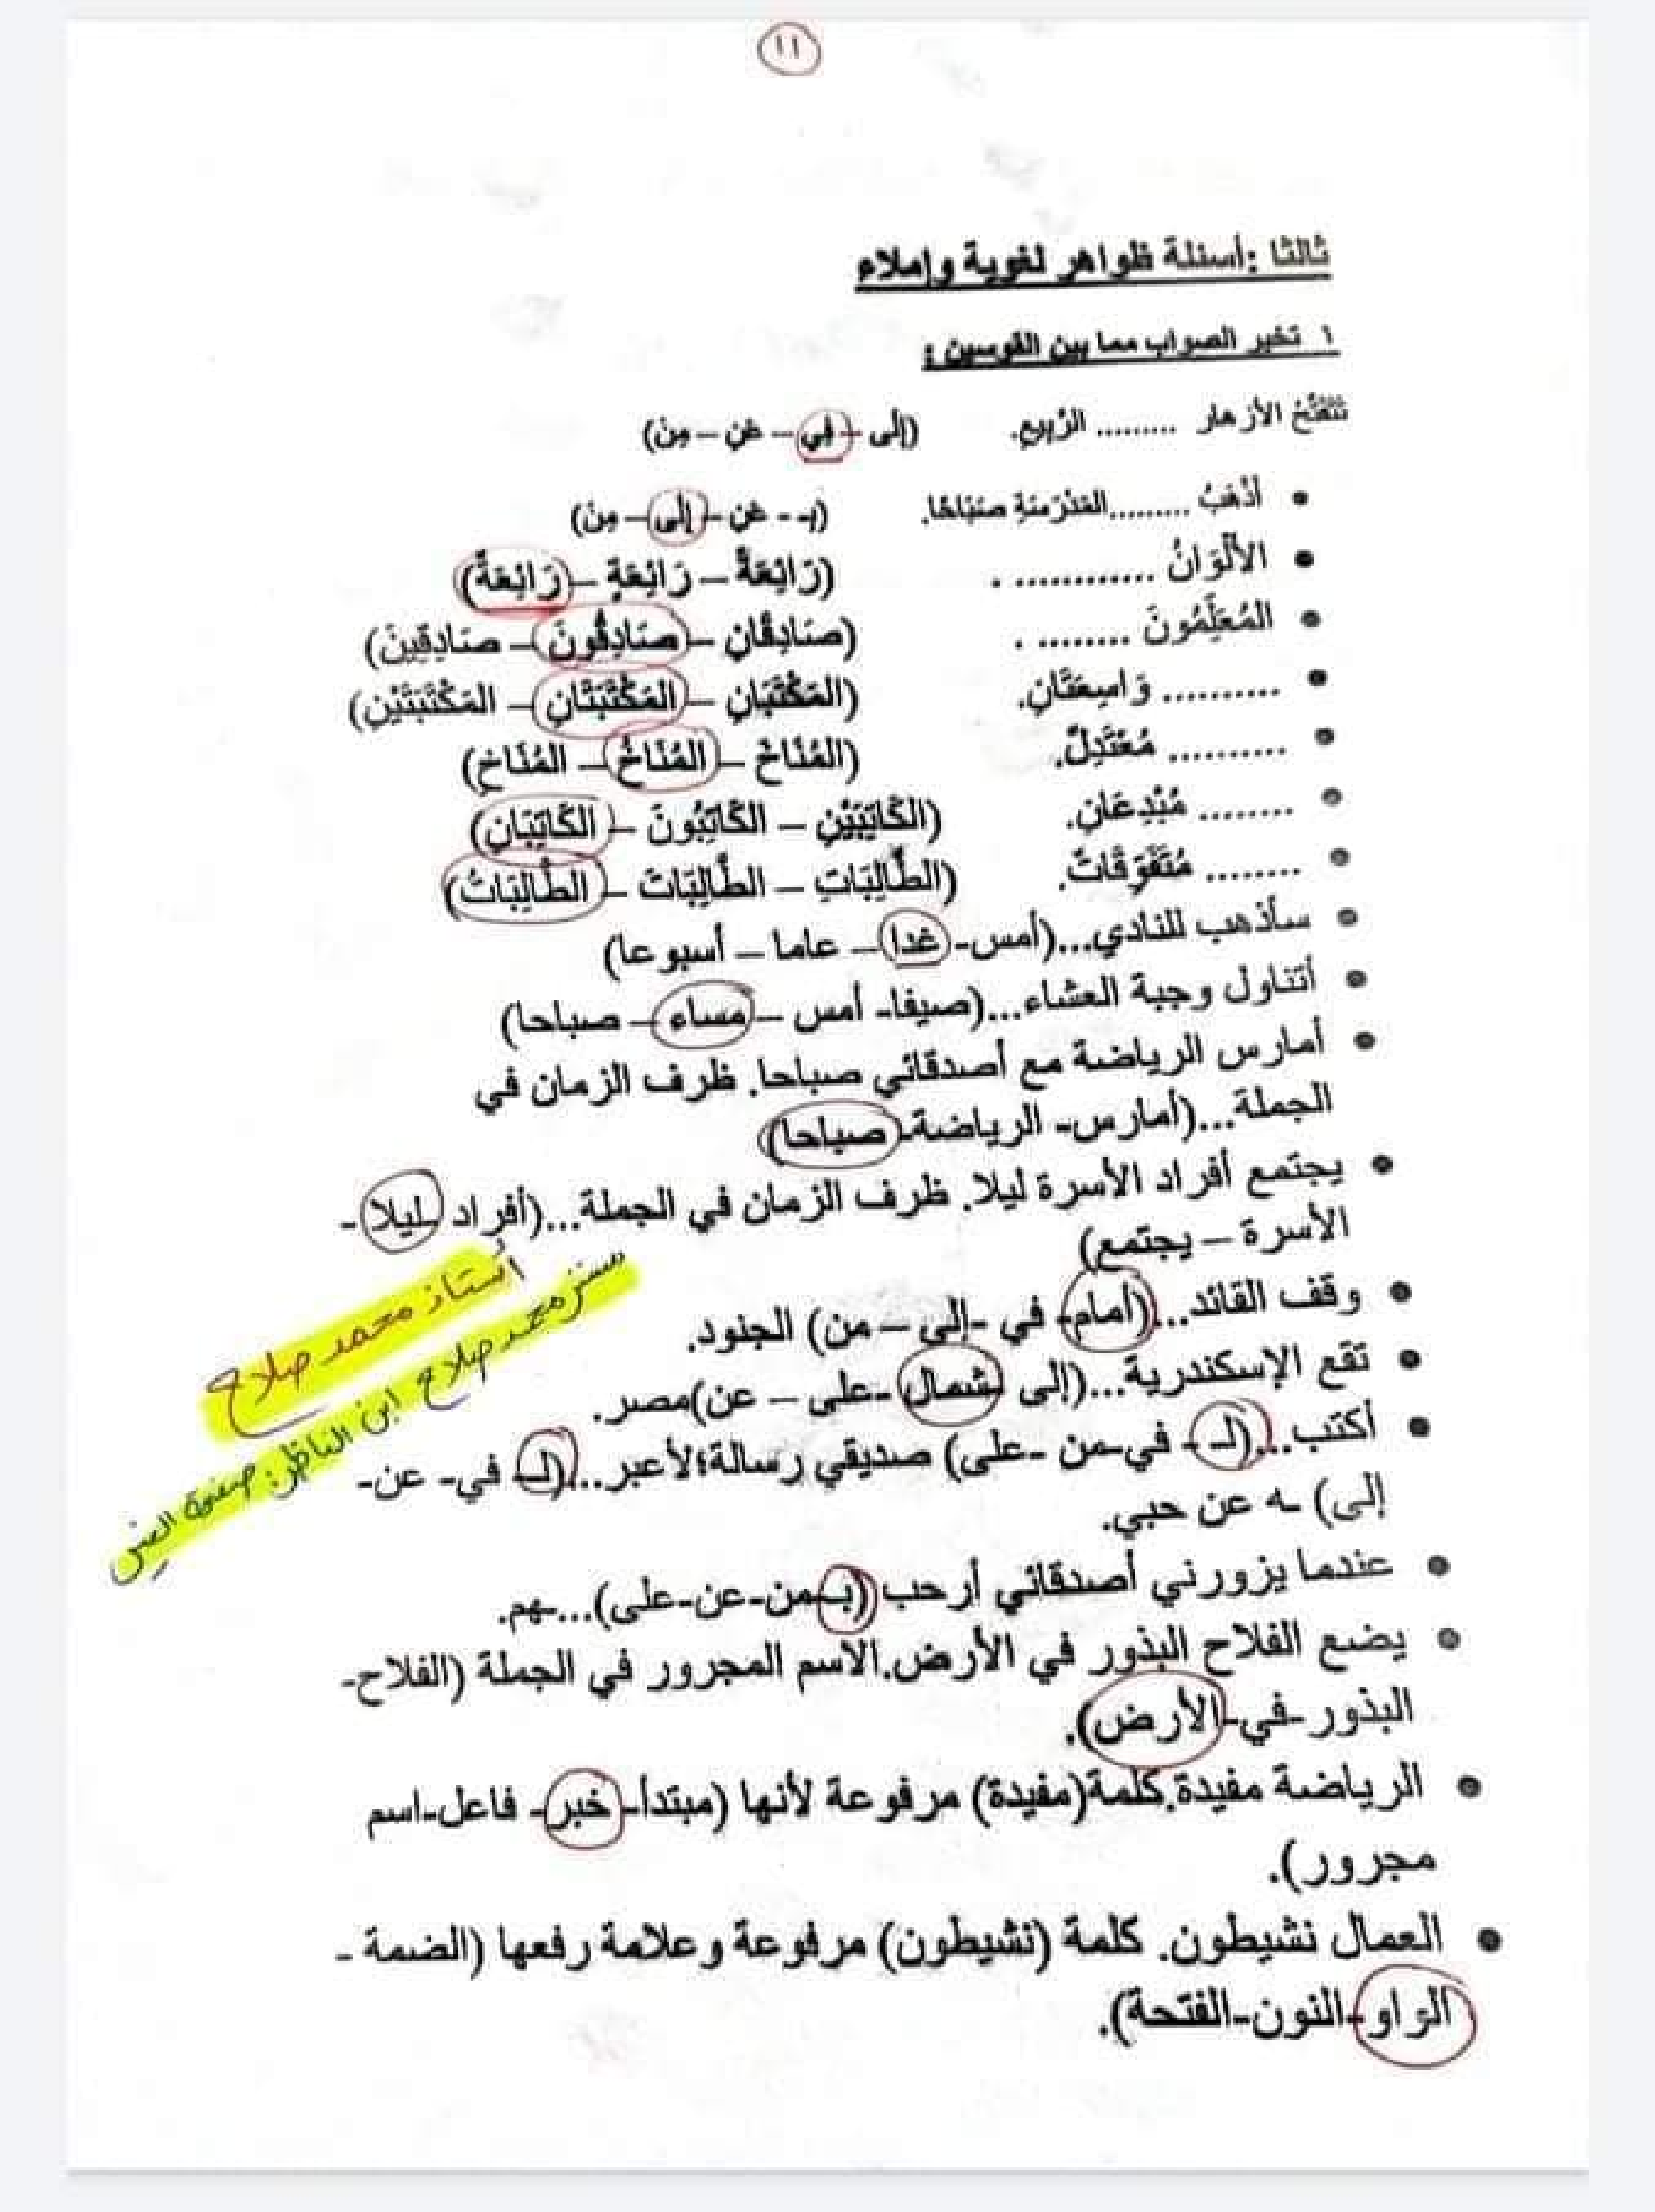 ١١
ثالثا :أسئلة ظواهر لغوية وإملاء
١ تخير الصواب مما بين القوسين :
تتفتح الأزهار ......... الربيع. (إلى – في – عن – من)
• أذهب .........المدرسة صباحا. (بـ - عن – إلى – من)
• الألوان ............ . (رائعة – رائعة – رائعة)
• المعلمون ........ . (صادقان – صادقون – صادقين)
• .......... واسعتان. (المكتبان – المكتبتان – المكتبتين)
• .......... معتدل. (المناخ – المناخ – المناخ)
• ........ مبدعان. (الكاتبين – الكاتبون – الكاتبان)
• ........ متفوقات. (الطالبات – الطالبات – الطالبات)
• سأذهب للنادي...(أمس- غدا – عاما – أسبوعا)
• أتناول وجبة العشاء...(صيفا- أمس – مساء – صباحا)
• أمارس الرياضة مع أصدقائي صباحا. ظرف الزمان في
الجملة...(أمارس- الرياضة- صباحا)
• يجتمع أفراد الأسرة ليلا. ظرف الزمان في الجملة...(أفراد -ليلا -
الأسرة – يجتمع)
• وقف القائد...(أمام- في -إلى – من) الجنود.
• تقع الإسكندرية...(إلى -شمال -على – عن)مصر.
• أكتب...(لـ - في-من -على) صديقي رسالة؛لأعبر...(لـ- في- عن-
إلى) ـه عن حبي.
• عندما يزورني أصدقائي أرحب (بـ-من-عن-على)...ـهم.
• يضع الفلاح البذور في الأرض.الاسم المجرور في الجملة (الفلاح-
البذور-في-الأرض).
• الرياضة مفيدة.كلمة(مفيدة) مرفوعة لأنها (مبتدأ- خبر- فاعل-اسم
مجرور).
• العمال نشيطون. كلمة (نشيطون) مرفوعة وعلامة رفعها (الضمة -
الواو-النون-الفتحة).
أستاذ محمد صلاح
مستر محمد صلاح ابن الناظر: